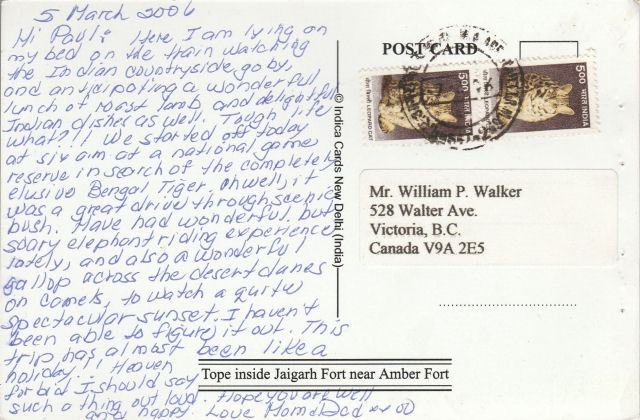 5 March 2006
Hi Paul: Here I am lying on
my bed on the train watching
the Indian countryside go by,
and anticipating a wonderful
lunch of roast lamb and delightful
Indian dishes as well. Tough life
what?!! We started off today
at six am at a national game
reserve in search of the completely
elusive Bengal Tiger. Oh well, it
was a great drive through scenic
bush. Have had wonderful, but
scary elephant riding experience
lately, and also a wonderful
gallop across the desert dunes
on camels, to watch a quite
spectacular sunset. I haven't
been able to figure it out. This
trip has almost been like a
holiday!! Heaven
forbid I should say
such a thing out loud. Hope you are well
and happy. Love Mom & Dad xx OO
© Indica Cards New Delhi (India)
POST CARD
5.00
भारत INDIA
LEOPARD CAT
5.00
भारत INDIA
Mr. William P. Walker
528 Walter Ave.
Victoria, B.C.
Canada V9A 2E5
Tope inside Jaigarh Fort near Amber Fort